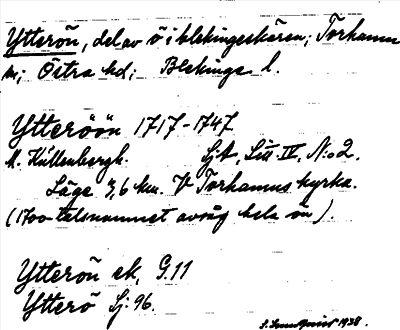 Ytterön, del av ö i blekingeskären; Torhamns
sn; Östra hd; Blekinge l.
Ytteröön 1717-1747
M. Källenbergh. SjA, Litt. IV, N:o 2.
Läge 3,6 km. V Torhamns kyrka.
(1700-talsnamnet avsåg hela ön).
Ytterön ek, G.11
Ytterö Sj: 96.
1938.